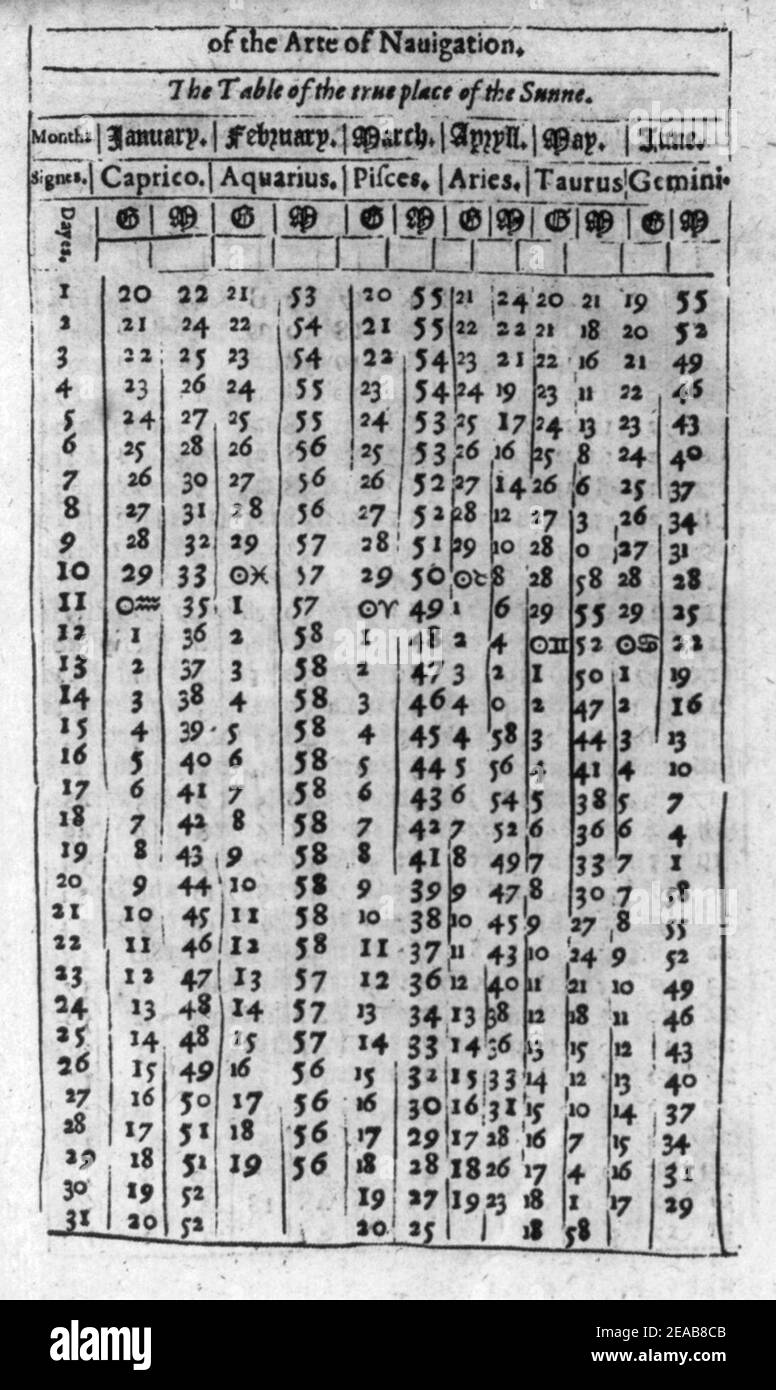 of the Arte of Nauigation.
The Table of the true place of the Sunne.
Month: | January. | February. | March. | Apryll. | May. | June.
Signes. | Caprico. | Aquarius. | Piſces. | Aries. | Taurus | Gemini.
Dayes. | G | M | G | M | G | M | G | M | G | M | G | M
1 20 22 21 53 20 55 21 24 20 21 19 55
2 21 24 22 54 21 55 22 22 21 18 20 52
3 22 25 23 54 22 54 23 21 22 16 21 49
4 23 26 24 55 23 54 24 19 23 11 22 46
5 24 27 25 55 24 53 25 17 24 13 23 43
6 25 28 26 56 25 53 26 16 25 8 24 40
7 26 30 27 56 26 52 27 14 26 6 25 37
8 27 31 28 56 27 52 28 12 27 3 26 34
9 28 32 29 57 28 51 29 10 28 0 27 31
10 29 33 ☉♓ 57 29 50 ☉♉ 8 28 58 28 28
11 ☉♒ 35 1 57 ☉♈ 49 1 6 29 55 29 25
12 1 36 2 58 1 48 2 4 ☉♊ 52 ☉♋ 22
13 2 37 3 58 2 47 3 2 1 50 1 19
14 3 38 4 58 3 46 4 0 2 47 2 16
15 4 39 5 58 4 45 4 58 3 44 3 13
16 5 40 6 58 5 44 5 56 41 4 10
17 6 41 7 58 6 43 6 54 5 38 5 7
18 7 42 8 58 7 42 7 52 6 36 6 4
19 8 43 9 58 8 41 8 49 7 33 7 1
20 9 44 10 58 9 39 9 47 8 30 7 58
21 10 45 11 58 10 38 10 45 9 27 8 55
22 11 46 12 58 11 37 11 43 10 24 9 52
23 12 47 13 57 12 36 12 40 11 21 10 49
24 13 48 14 57 13 34 13 38 12 18 11 46
25 14 48 15 57 14 33 14 36 13 15 12 43
26 15 49 16 56 15 32 15 33 14 12 13 40
27 16 50 17 56 16 30 16 31 15 10 14 37
28 17 51 18 56 17 29 17 28 16 7 15 34
29 18 51 19 56 18 28 18 26 17 4 16 31
30 19 52 19 27 19 23 18 1 17 29
31 20 52 20 25 18 58
alamy
alamy
alamy
alamy
Image ID: 2EAB8CB
www.alamy.com